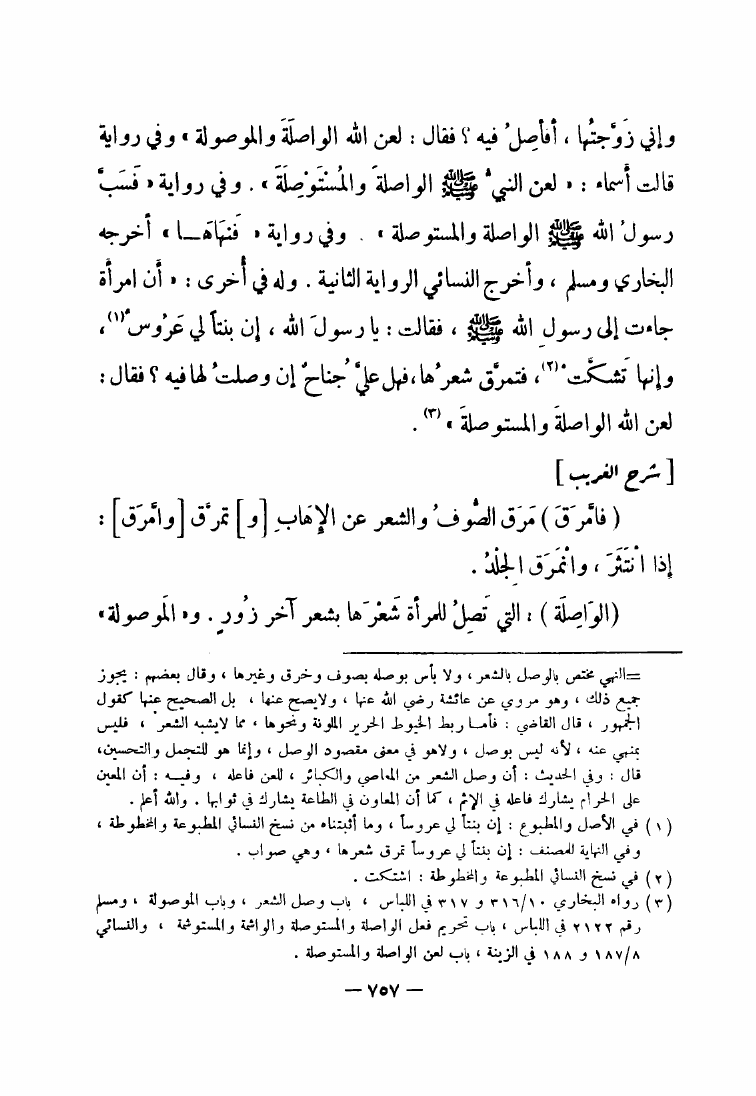 وإني زَوَّجتُها ، أفأصِلُ فيه ؟ فقال : لعن الله الواصلَةَ والموصولة » وفي رواية
قالت أسماء : « لعن النبيُّ ﷺ الواصلةَ والمُسْتَوْصِلَةَ » . وفي رواية « فَسَبَّ
رسولُ الله ﷺ الواصلة والمستوصلة » . وفي رواية « فَنَهَاهَـا » أخرجه
البخاري ومسلم ، وأخرج النسائي الرواية الثانية . وله في أُخرى : « أن امرأة
جاءت إلى رسولِ الله ﷺ ، فقالت : يا رسولَ الله ، إن بنتاً لي عَرُوسٌ(١)،
وإنها تَشكَّت(٢)، فتمرَّق شعرُها،فهل عليَّ جُناحٌ إن وصلتُ لها فيه ؟ فقال :
لعن الله الواصلةَ والمستوصلةَ »(٣) .
[ شرح الغريب ]
( فامَّرَقَ ) مَرَق الصُّوفُ والشعر عن الإهَابِ [و] تمرَّق [وامَّرَق] :
إذا انْتَثَرَ ، وانْمَرَق الجِلْدُ .
(الوَاصِلَة ) : التي تَصِلُ للمرأة شَعْرَها بشعر آخر زُورٍ . و« المَوصولة»
=النهي مختص بالوصل بالشعر، ولا بأس بوصله بصوف وخرق وغيرها ، وقال بعضهم : يجوز
جميع ذلك ، وهو مروي عن عائشة رضي الله عنها ، ولايصح عنها ، بل الصحيح عنها كقول
الجمهور ، قال القاضي : فأمـا ربط الخيوط الحرير الملونة ونحوها ، مما لايشبه الشعر ، فليس
بمنهي عنه ، لأنه ليس بوصل ، ولاهو في معنى مقصود الوصل ، وإنما هو للتجمل والتحسين،
قال : وفي الحديث : أن وصل الشعر من المعاصي والكبائر ، للعن فاعله ، وفيـه : أن المعين
على الحرام يشارك فاعله في الإثم ، كما أن المعاون في الطاعة يشارك في ثوابها . والله أعلم .
(١) في الأصل والمطبوع : إن بنتاً لي عروساً ، وما أثبتناه من نسخ النسائي المطبوعة والمخطوطة ،
وفي النهاية للمصنف : إن بنتاً لي عروساً تمرق شعرها ، وهي صواب .
(٢) في نسخ النسائي المطبوعة والمخطوطة : اشتكت .
(٣) رواه البخاري ٣١٦/١٠ و ٣١٧ في اللباس ، باب وصل الشعر ، وباب الموصولة ، ومسلم
رقم ٢١٢٢ في اللباس ، باب تحريم فعل الواصلة والمستوصلة والواشمة والمستوشمة ، والنسائي
١٨٧/٨ و ١٨٨ في الزينة ، باب لعن الواصلة والمستوصلة .
— ٧٥٧ —